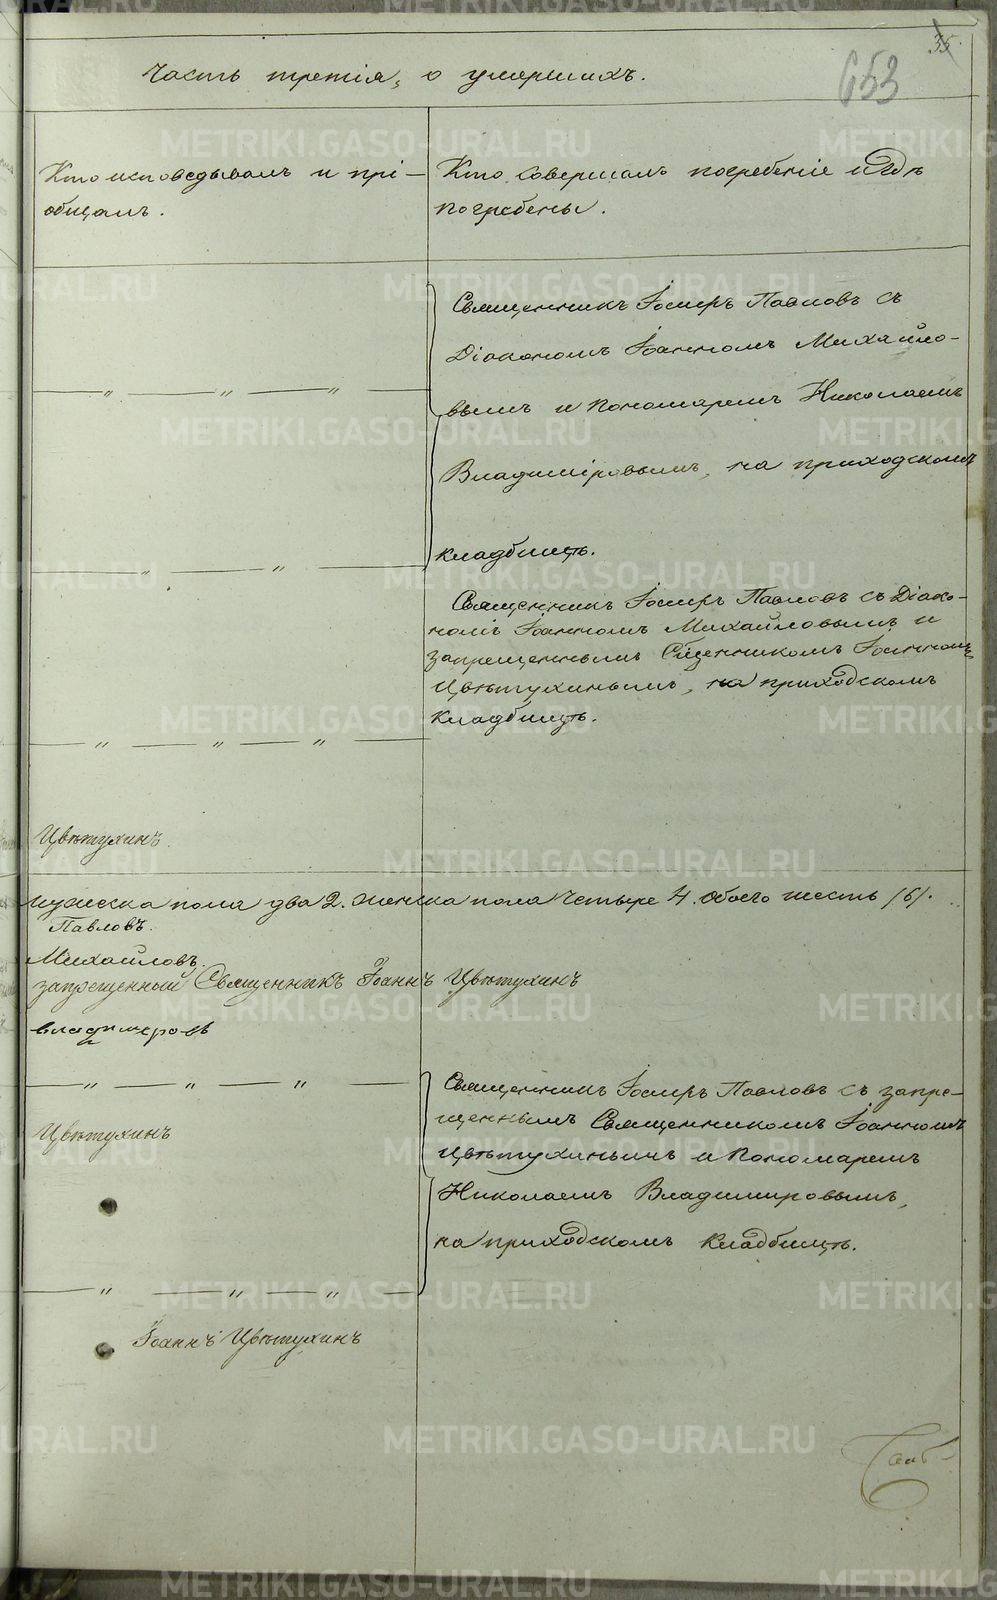 35.
653
Часть третія, о умершихъ.
Кто исповедывалъ и прі-
общалъ.
Кто совершалъ погребеніе и гдѣ
погребены.
Священникъ Іосифъ Павловъ съ
Діакономъ Іоанномъ Михайло-
вымъ и Пономаремъ Николаемъ
Владиміровымъ, на приходскомъ
кладбищѣ.
Священникъ Іосифъ Павловъ съ Діако-
номъ Іоанномъ Михайловымъ и
запрещеннымъ Сщенникомъ Іоанномъ
Цвѣтухинымъ, на приходскомъ
кладбищѣ.
Цвѣтухинъ.
мужеска пола два 2. женска пола четыре 4. обоего шесть /6/.
Павловъ.
Михайловъ.
запрещенный Священникъ Іоаннъ Цвѣтухинъ
Владимеровъ
Священникъ Іосифъ Павловъ съ запре-
щеннымъ Священникомъ Іоанномъ
Цвѣтухинымъ и Пономаремъ
Николаемъ Владимировымъ,
на приходскомъ кладбищѣ.
Цвѣтухинъ
Іоаннъ Цвѣтухинъ
METRIKI.GASO-URAL.RU